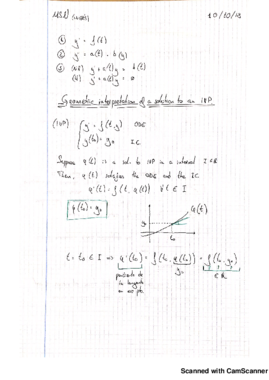 10/10/18
① y' = f(t)
② y' = a(t) · b(y)
③ y' + a(t)y = b(t)
y' + a(t)y = 0
Geometric interpretation of a solution to an IVP
(IVP) { y' = f(t, y) ODE
y(t₀) = y₀ I.C.
Suppose φ(t) is a sol. to IVP in a interval I ⊂ ℝ
Then, φ(t) satisfies the ODE and the IC
φ'(t) = f(t, φ(t)) ∀t ∈ I
φ(t₀) = y₀
φ(t)
y₀
t₀
t = t₀ ∈ I ⇒ φ'(t₀) = f(t₀, φ(t₀)) = f(t₀, y₀)
y₀
∈ ℝ
pendiente de
la tangente
en ese pto.
Scanned with CamScanner